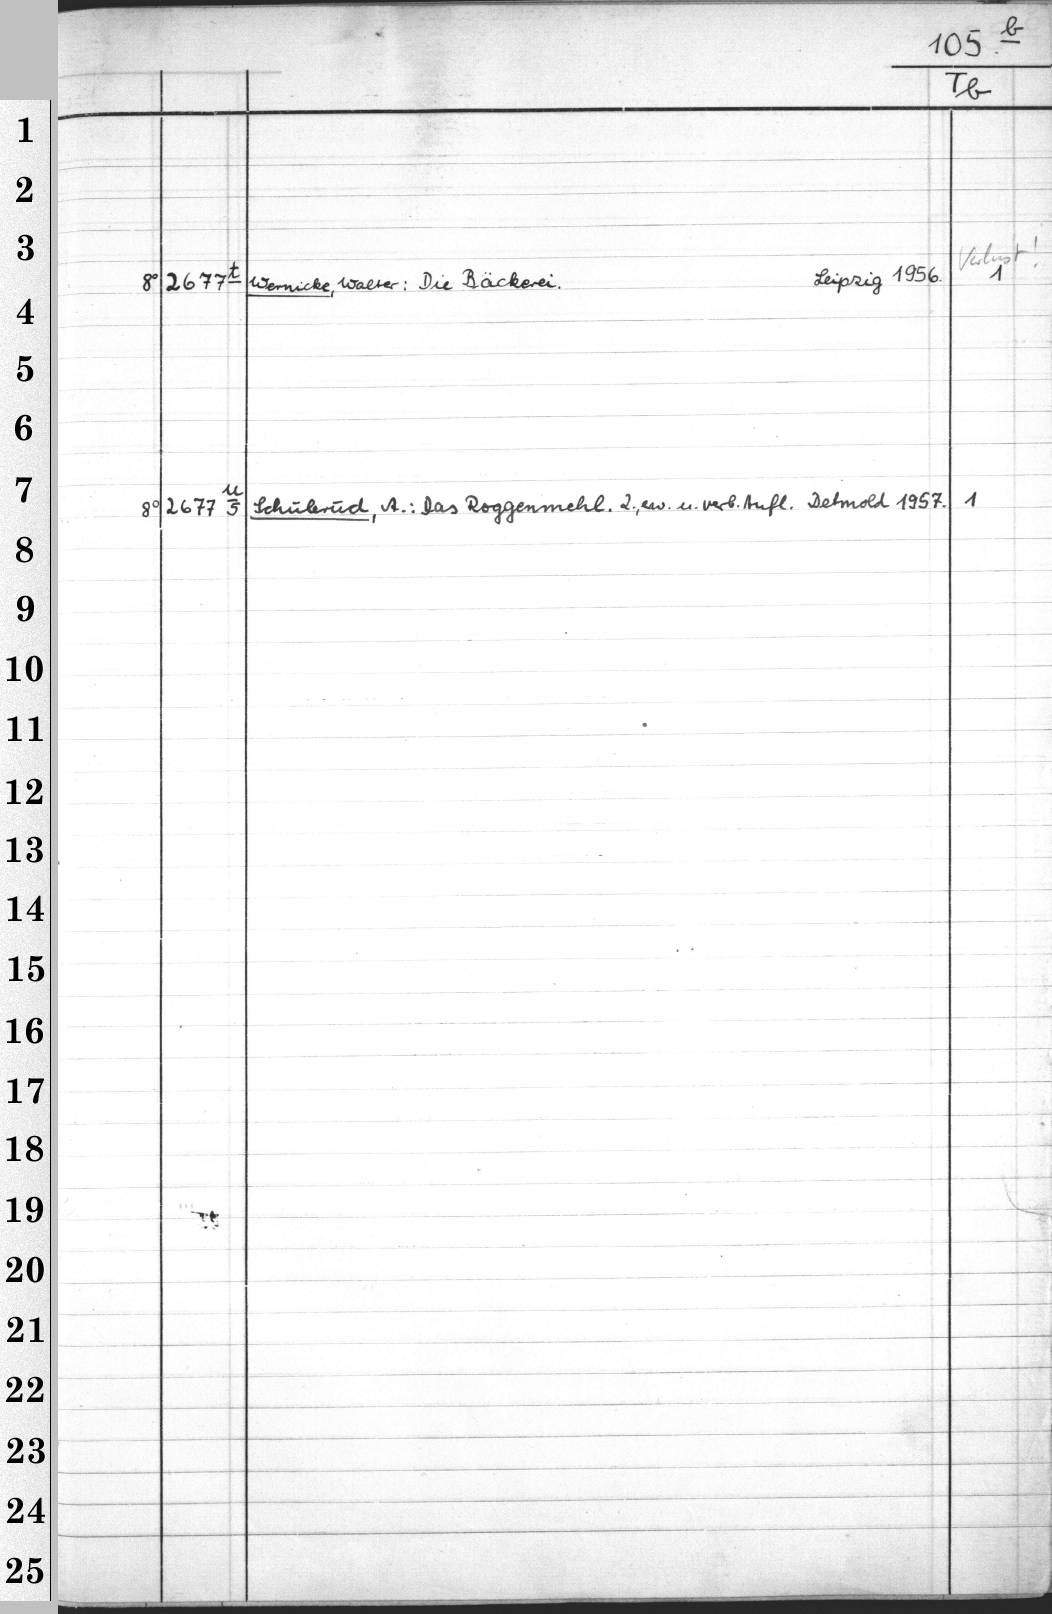 105 b
Tb
1
2
3
Verlust!
8° 2677 t Wernicke, Walter: Die Bäckerei. Leipzig 1956. 1
4
5
6
7
8° 2677 u/5 Schulerud, A.: Das Roggenmehl. 2., erw. u. verb. Aufl. Detmold 1957. 1
8
9
10
11
12
13
14
15
16
17
18
19
20
21
22
23
24
25